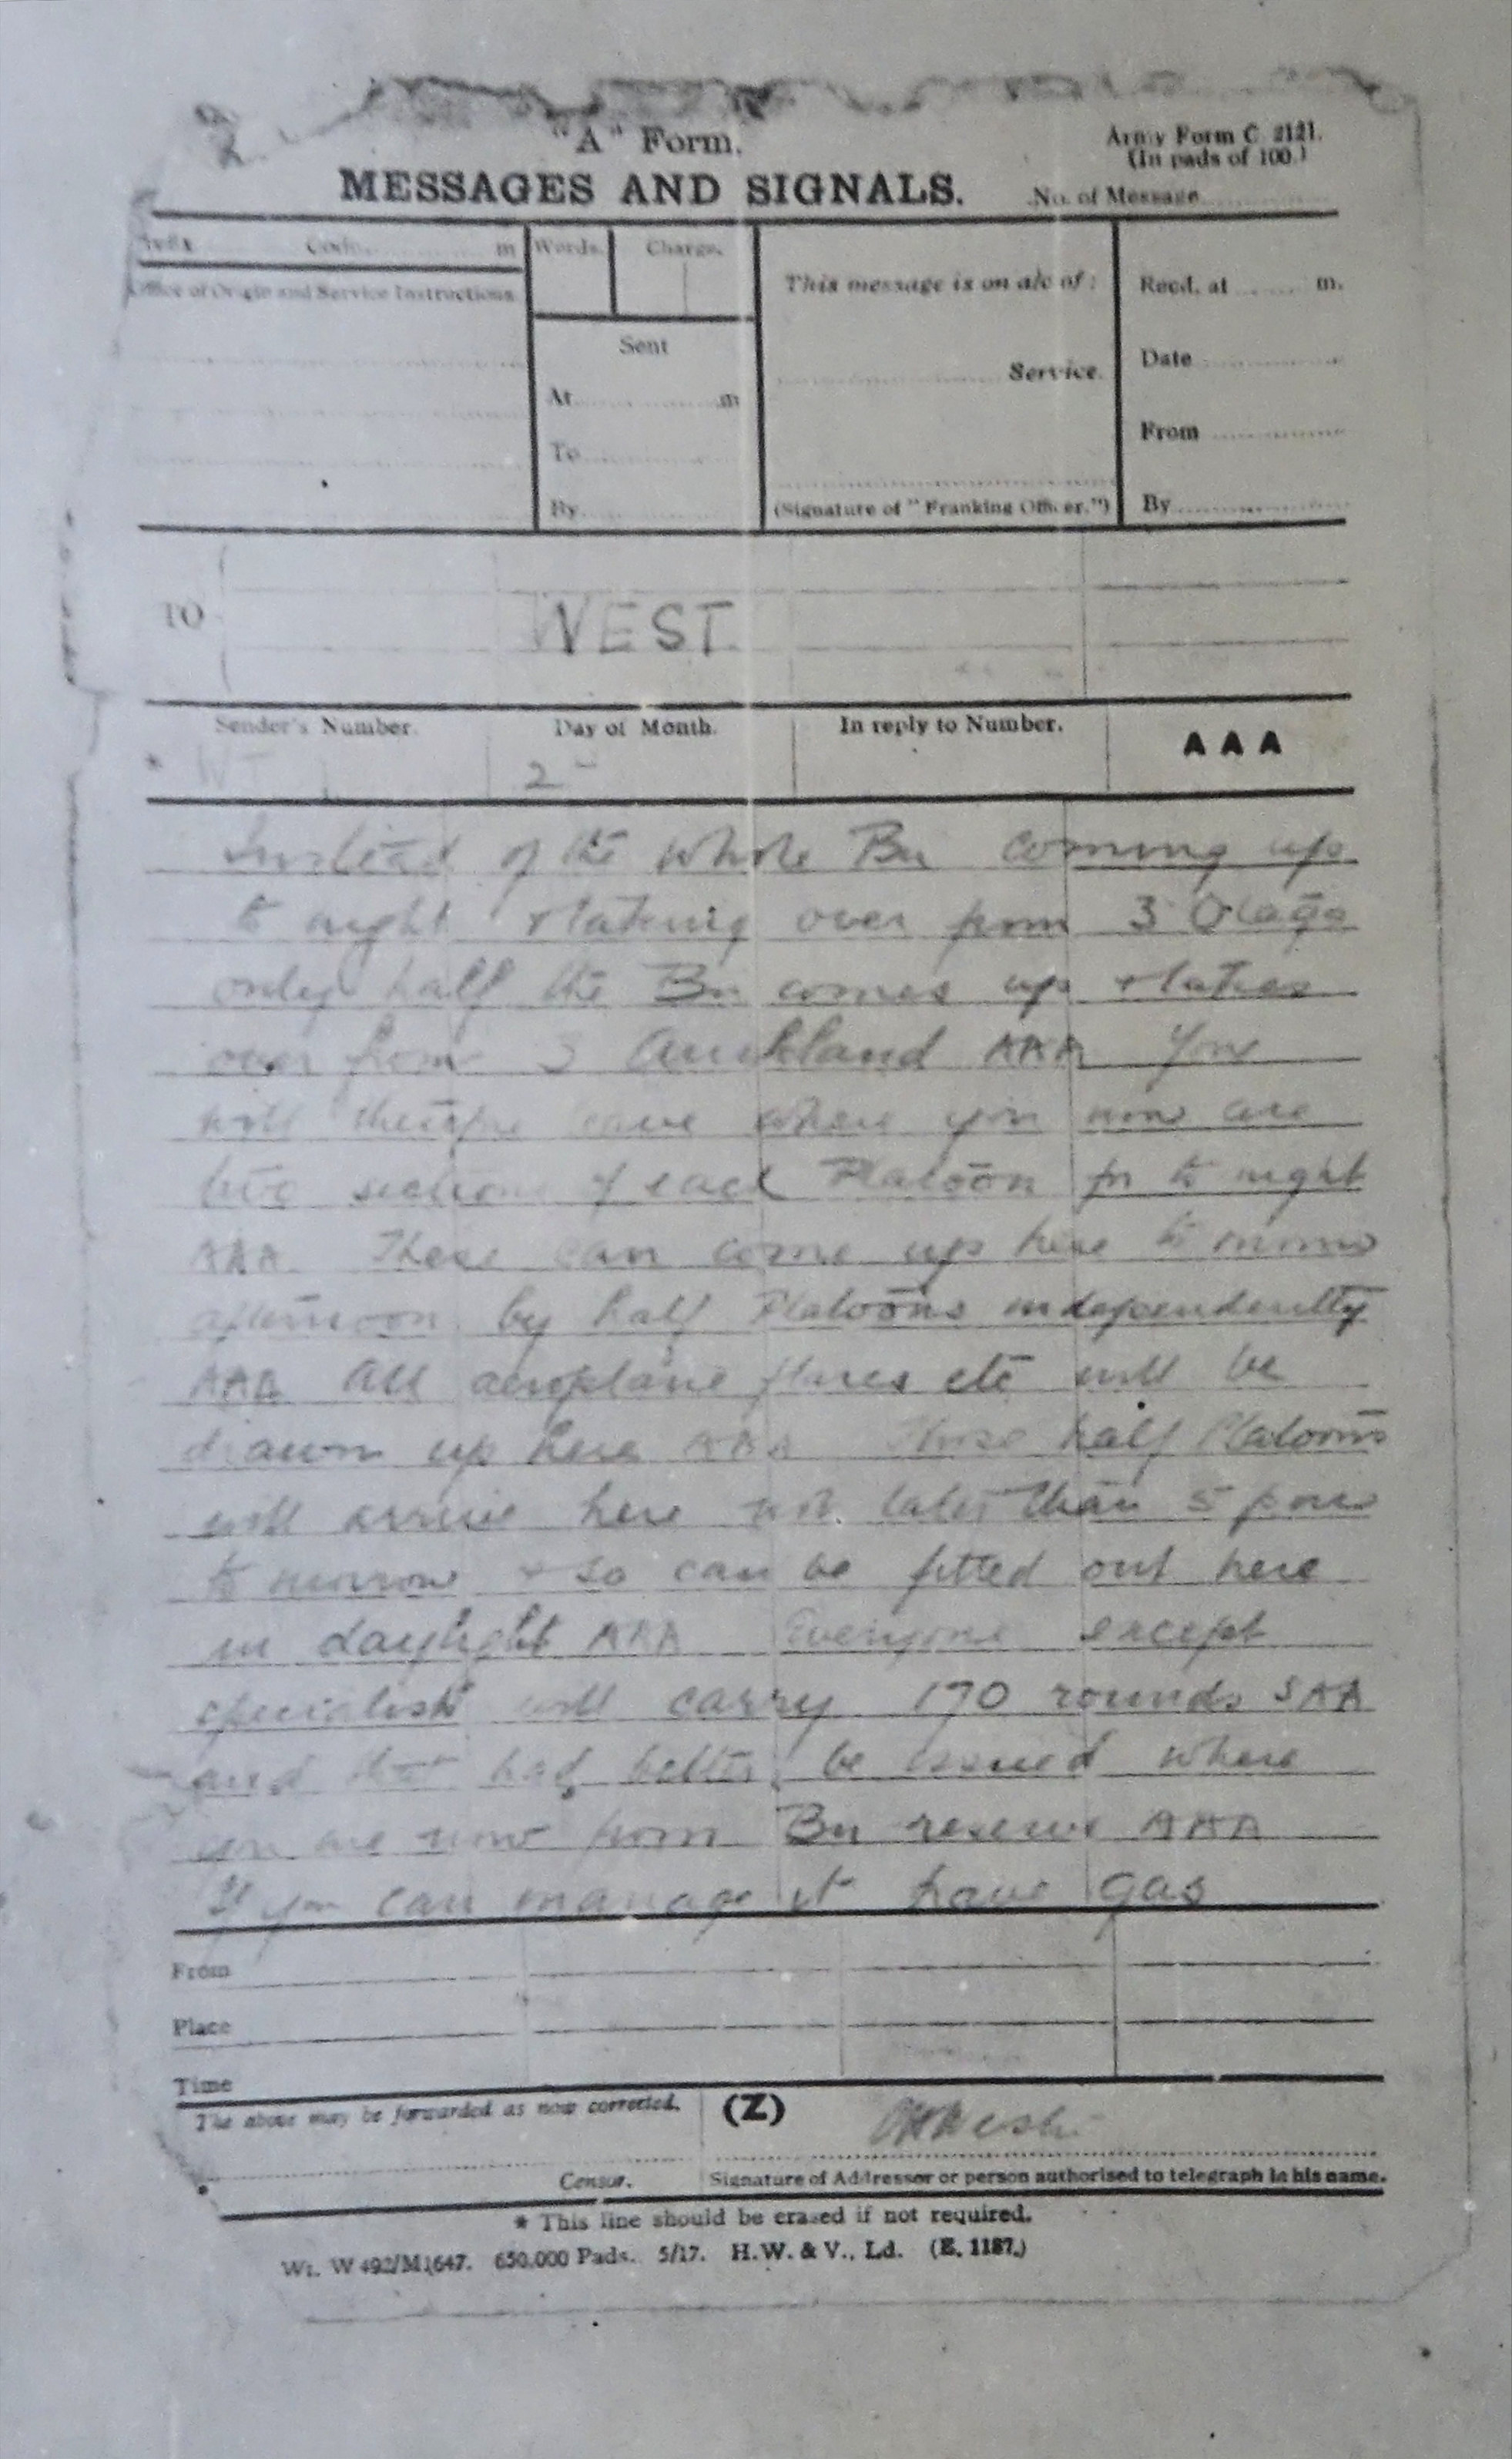 2
"A" Form.
Army Form C. 2121.
(In pads of 100.)
MESSAGES AND SIGNALS.
No. of Message
Prefix Code m
Words.
Charge.
This message is on a/c of:
Recd. at m.
Office of Origin and Service Instructions.
Sent
Date
Service.
At m
From
To
By
(Signature of "Franking Officer.")
By
TO
WEST
Sender's Number.
Day of Month.
In reply to Number.
AAA
* WT
2
Instead of the whole Bn coming up
to night & taking over from 3 Otago
only half the Bn comes up & takes
over from 3 Auckland AAA You
will therefore leave where you now are
two sections of each Platoon for to night
AAA These can come up here to morrow
afternoon by half Platoons independently
AAA All aeroplane flares etc will be
drawn up here AAA These half Platoons
will arrive here not later than 5 pm
to morrow & so can be fitted out here
in daylight AAA Everyone except
specialists will carry 170 rounds SAA
and that had better be issued where
you are now from Bn reserve AAA
If you can manage it have gas
From
Place
Time
The above may be forwarded as now corrected.
(Z)
Censor.
Signature of Addressor or person authorised to telegraph in his name.
* This line should be erased if not required.
Wt. W 492/M1647. 650,000 Pads. 5/17. H.W. & V., Ld. (E. 1187.)